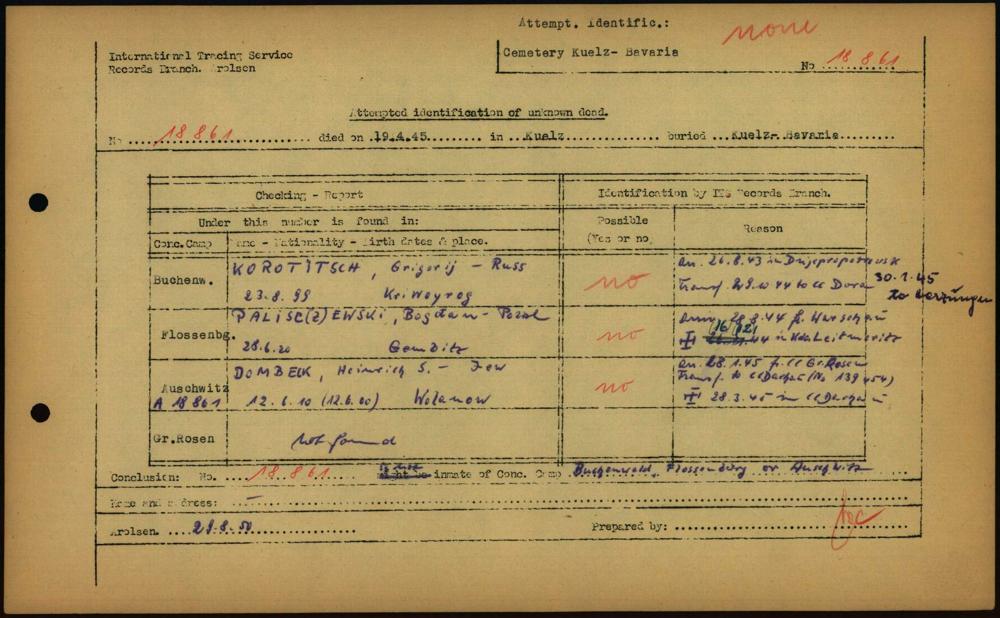 Attempt. Identific.: none
International Tracing Service
Records Branch. Arolsen
Cemetery Kuelz- Bavaria
No 18 861
Attempted identification of unknown dead.
No 18 861 died on 19.4.45 in Kuelz buried Kuelz- Bavaria
Checking - Report
Identification by ITS Records Branch.
Under this number is found in:
Possible
(Yes or no)
Reason
Conc.Camp
Name - Nationality - Birth dates & place.
Buchenw.
KOROTITSCH, Grigorij - Russ
23.8.99 Kriwoyrog
no
arr. 26.8.43 in Dnjepropetrowsk
Transf. 29.10 44 to cc Dora 30.1.45
to
Flossenbg.
PALISC(Z)EWSKI, Bogdan -
28.6.20
no
28.8.44 fr. Warschau
16 12 44 in Leitmeritz
Auschwitz
A 18861
DOMBECK, Heinrich S. - Jew
12.6.10 (12.6.00) Wolanow
no
arr. 28.1.45 fr. cc Gr.Rosen
Transf. to cc Dachau (No 139 454)
28.3.45 in cc Dachau
Gr.Rosen
not found
Conclusion: No. 18.861 is not inmate of Conc. Camp Buchenwald, Flossenbürg or Auschwitz
Name and address: —
Arolsen. 29.8.50
Prepared by: